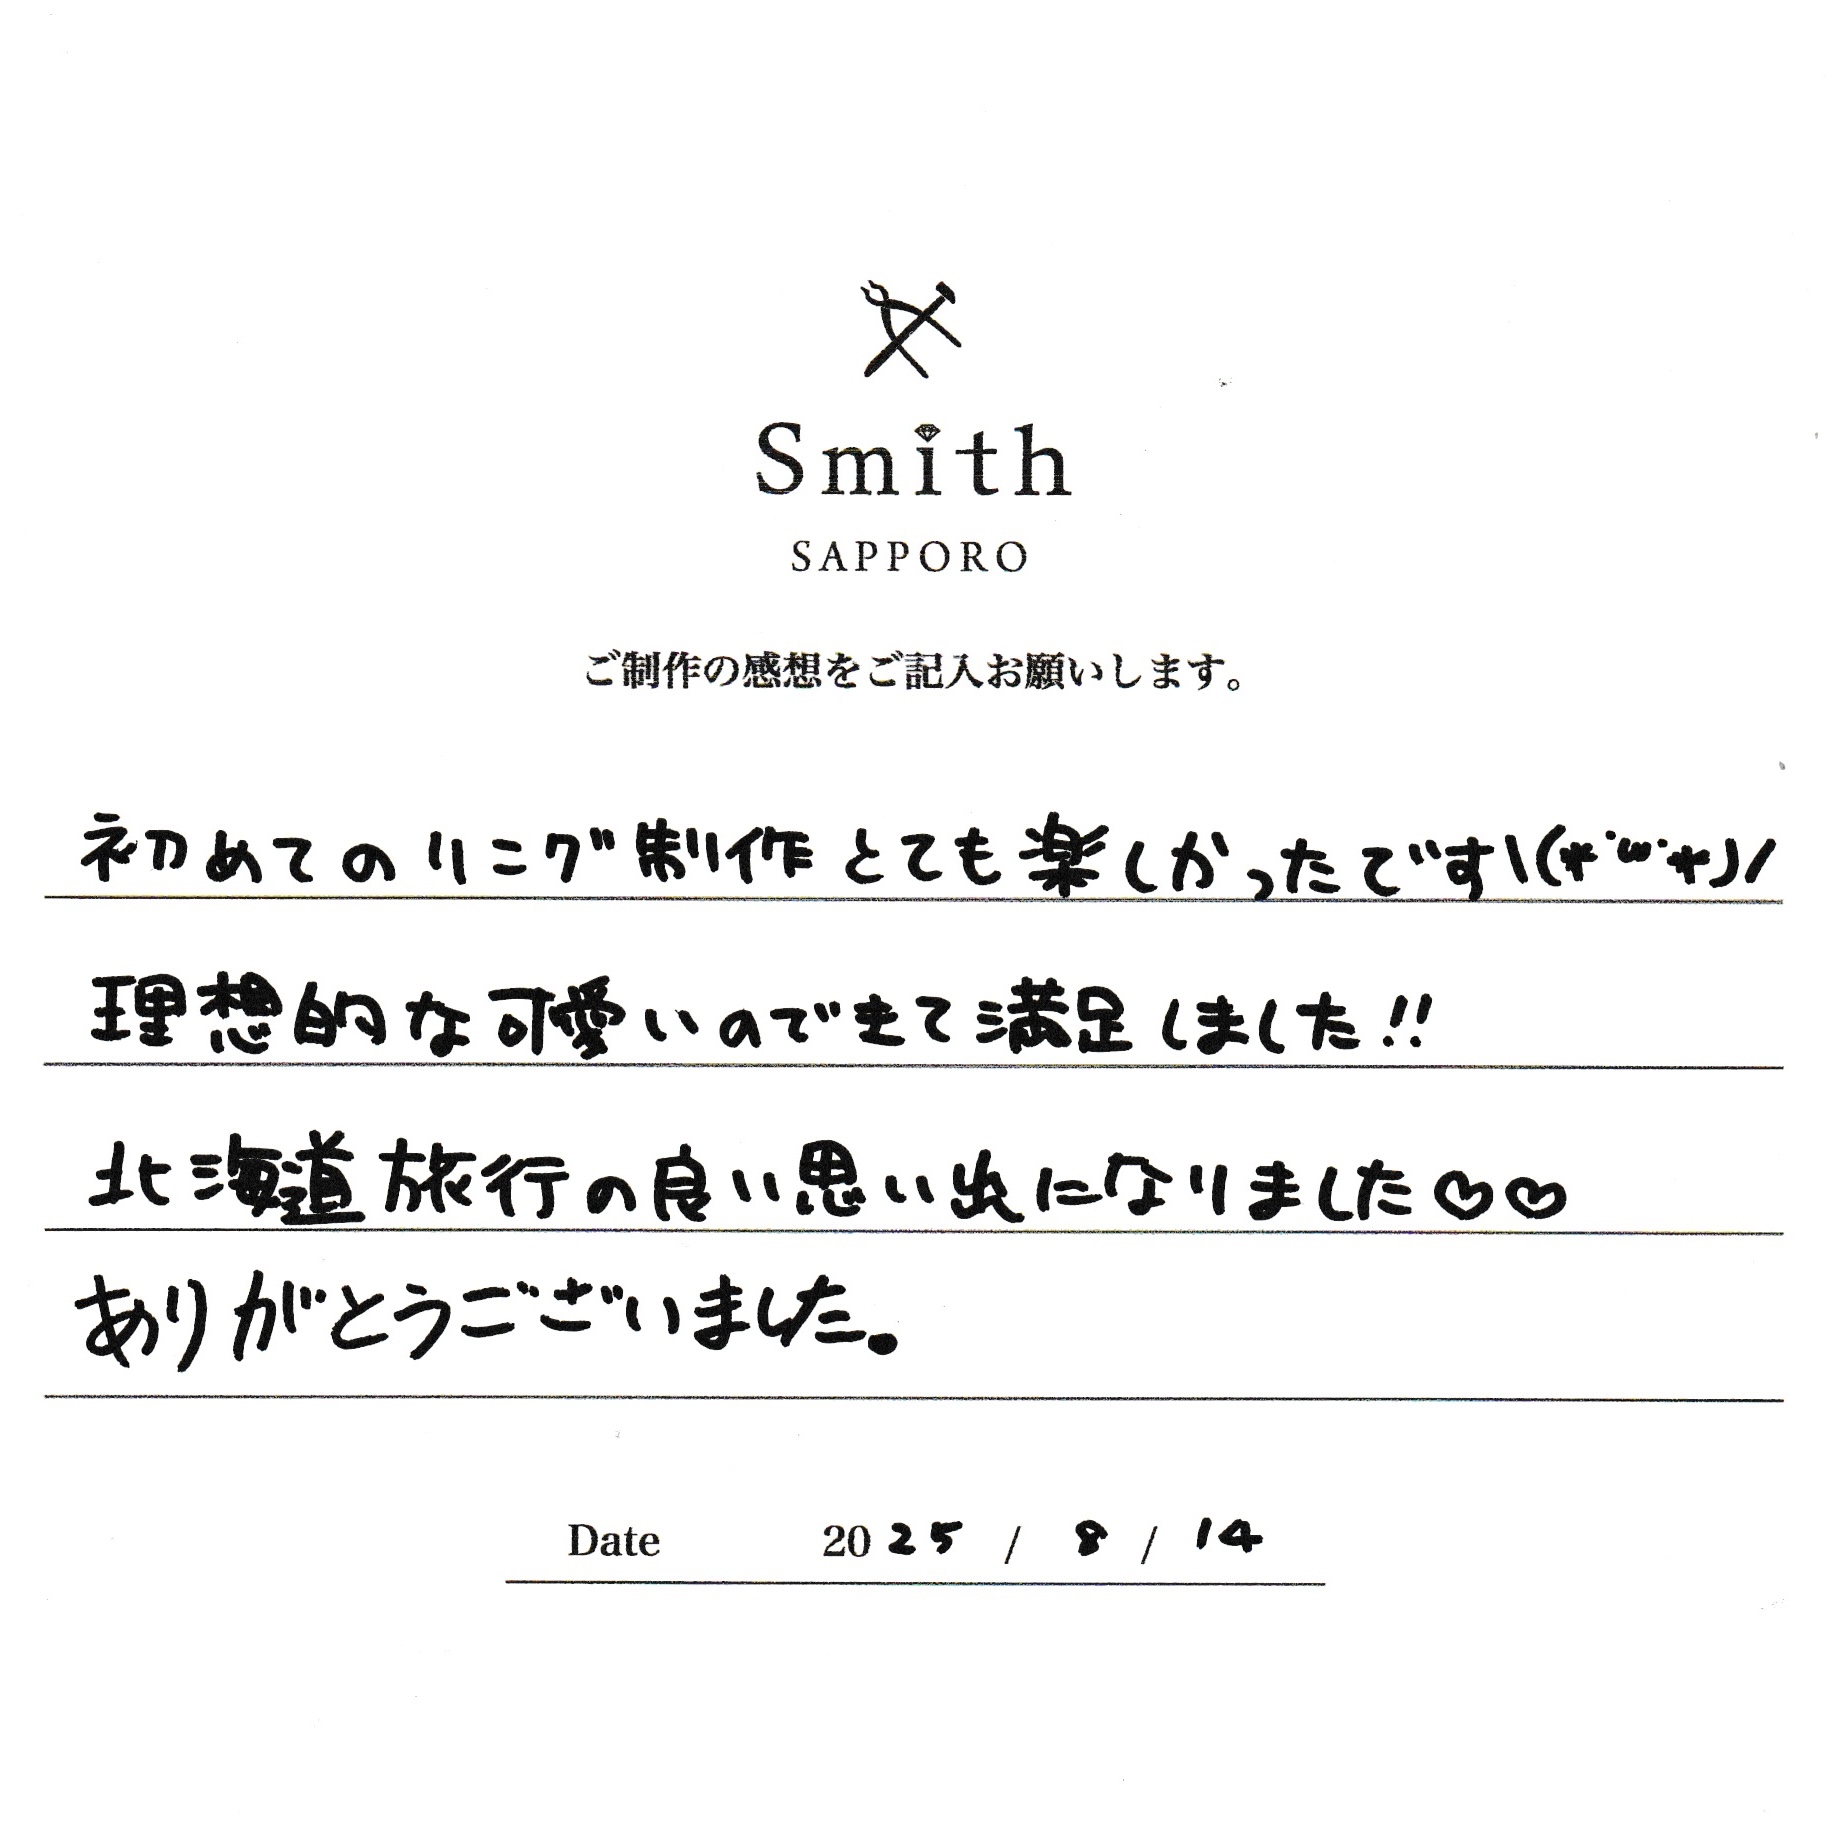 Smith
SAPPORO
ご制作の感想をご記入お願いします。
初めてのリング制作とても楽しかったです\(*˙ω˙*)/
理想的な可愛いのできて満足しました!!
北海道旅行の良い思い出になりました♡♡
ありがとうございました。
Date 2025 / 8 / 14